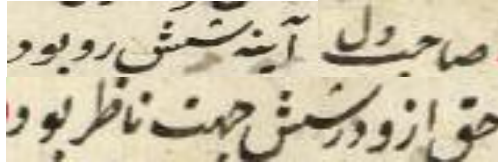 صاحب دل آینه شش رو بود
حق ازو در شش جهت ناظر بود